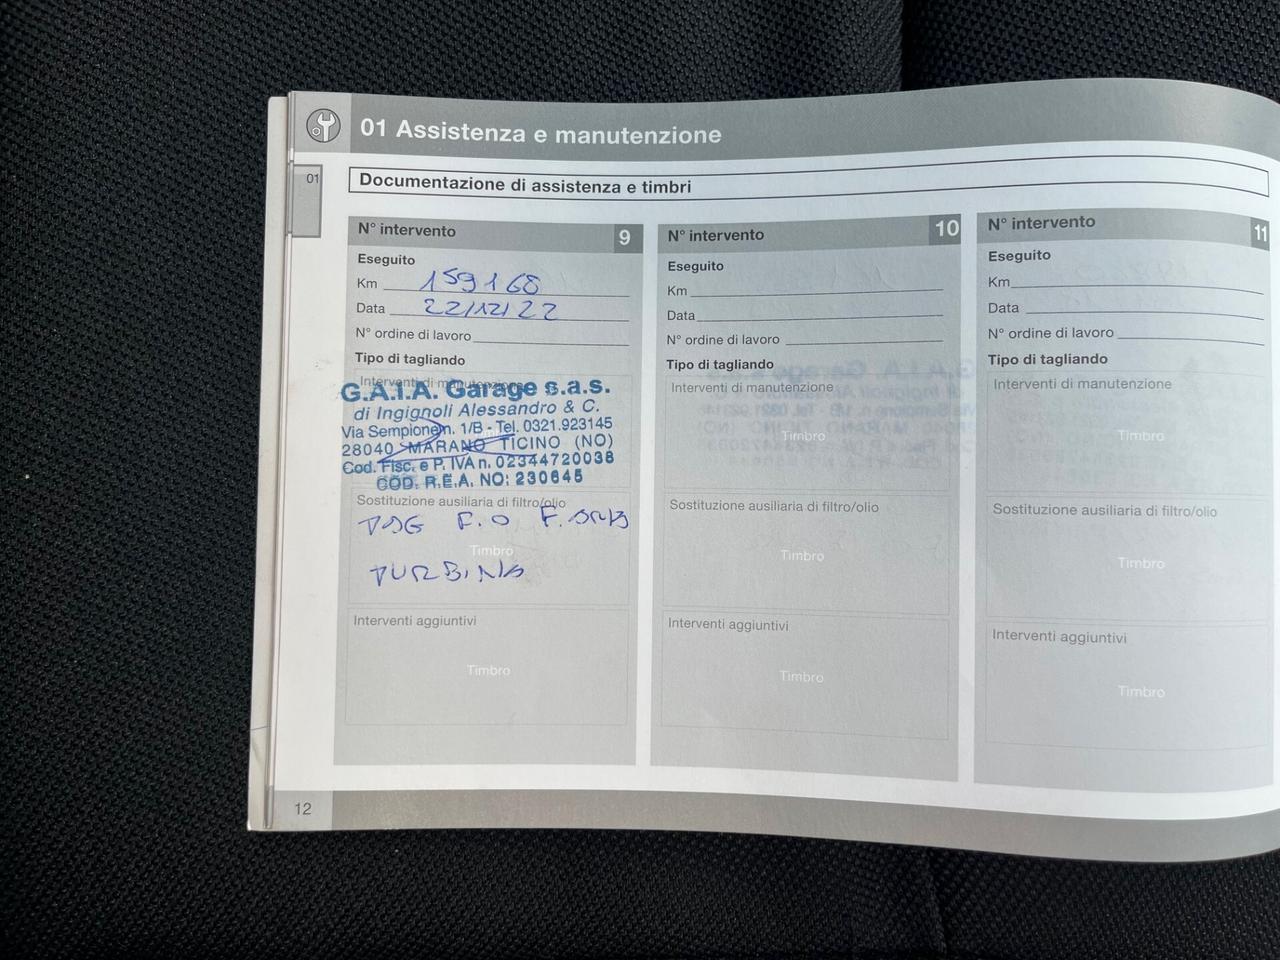 01 Assistenza e manutenzione
01
Documentazione di assistenza e timbri
N° intervento 9
Eseguito
Km 159168
Data 22/12/22
N° ordine di lavoro
Tipo di tagliando
Interventi di manutenzione
G.A.I.A. Garage s.a.s.
di Ingignoli Alessandro & C.
Via Sempione n. 1/B - Tel. 0321.923145
28040 MARANO TICINO (NO)
Cod. Fisc. e P. IVA n. 02344720038
COD. R.E.A. NO: 230645
Sostituzione ausiliaria di filtro/olio
F.O
Timbro
Interventi aggiuntivi
Timbro
N° intervento 10
Eseguito
Km
Data
N° ordine di lavoro
Tipo di tagliando
Interventi di manutenzione
Timbro
Sostituzione ausiliaria di filtro/olio
Timbro
Interventi aggiuntivi
Timbro
N° intervento 11
Eseguito
Km
Data
N° ordine di lavoro
Tipo di tagliando
Interventi di manutenzione
Timbro
Sostituzione ausiliaria di filtro/olio
Timbro
Interventi aggiuntivi
Timbro
12